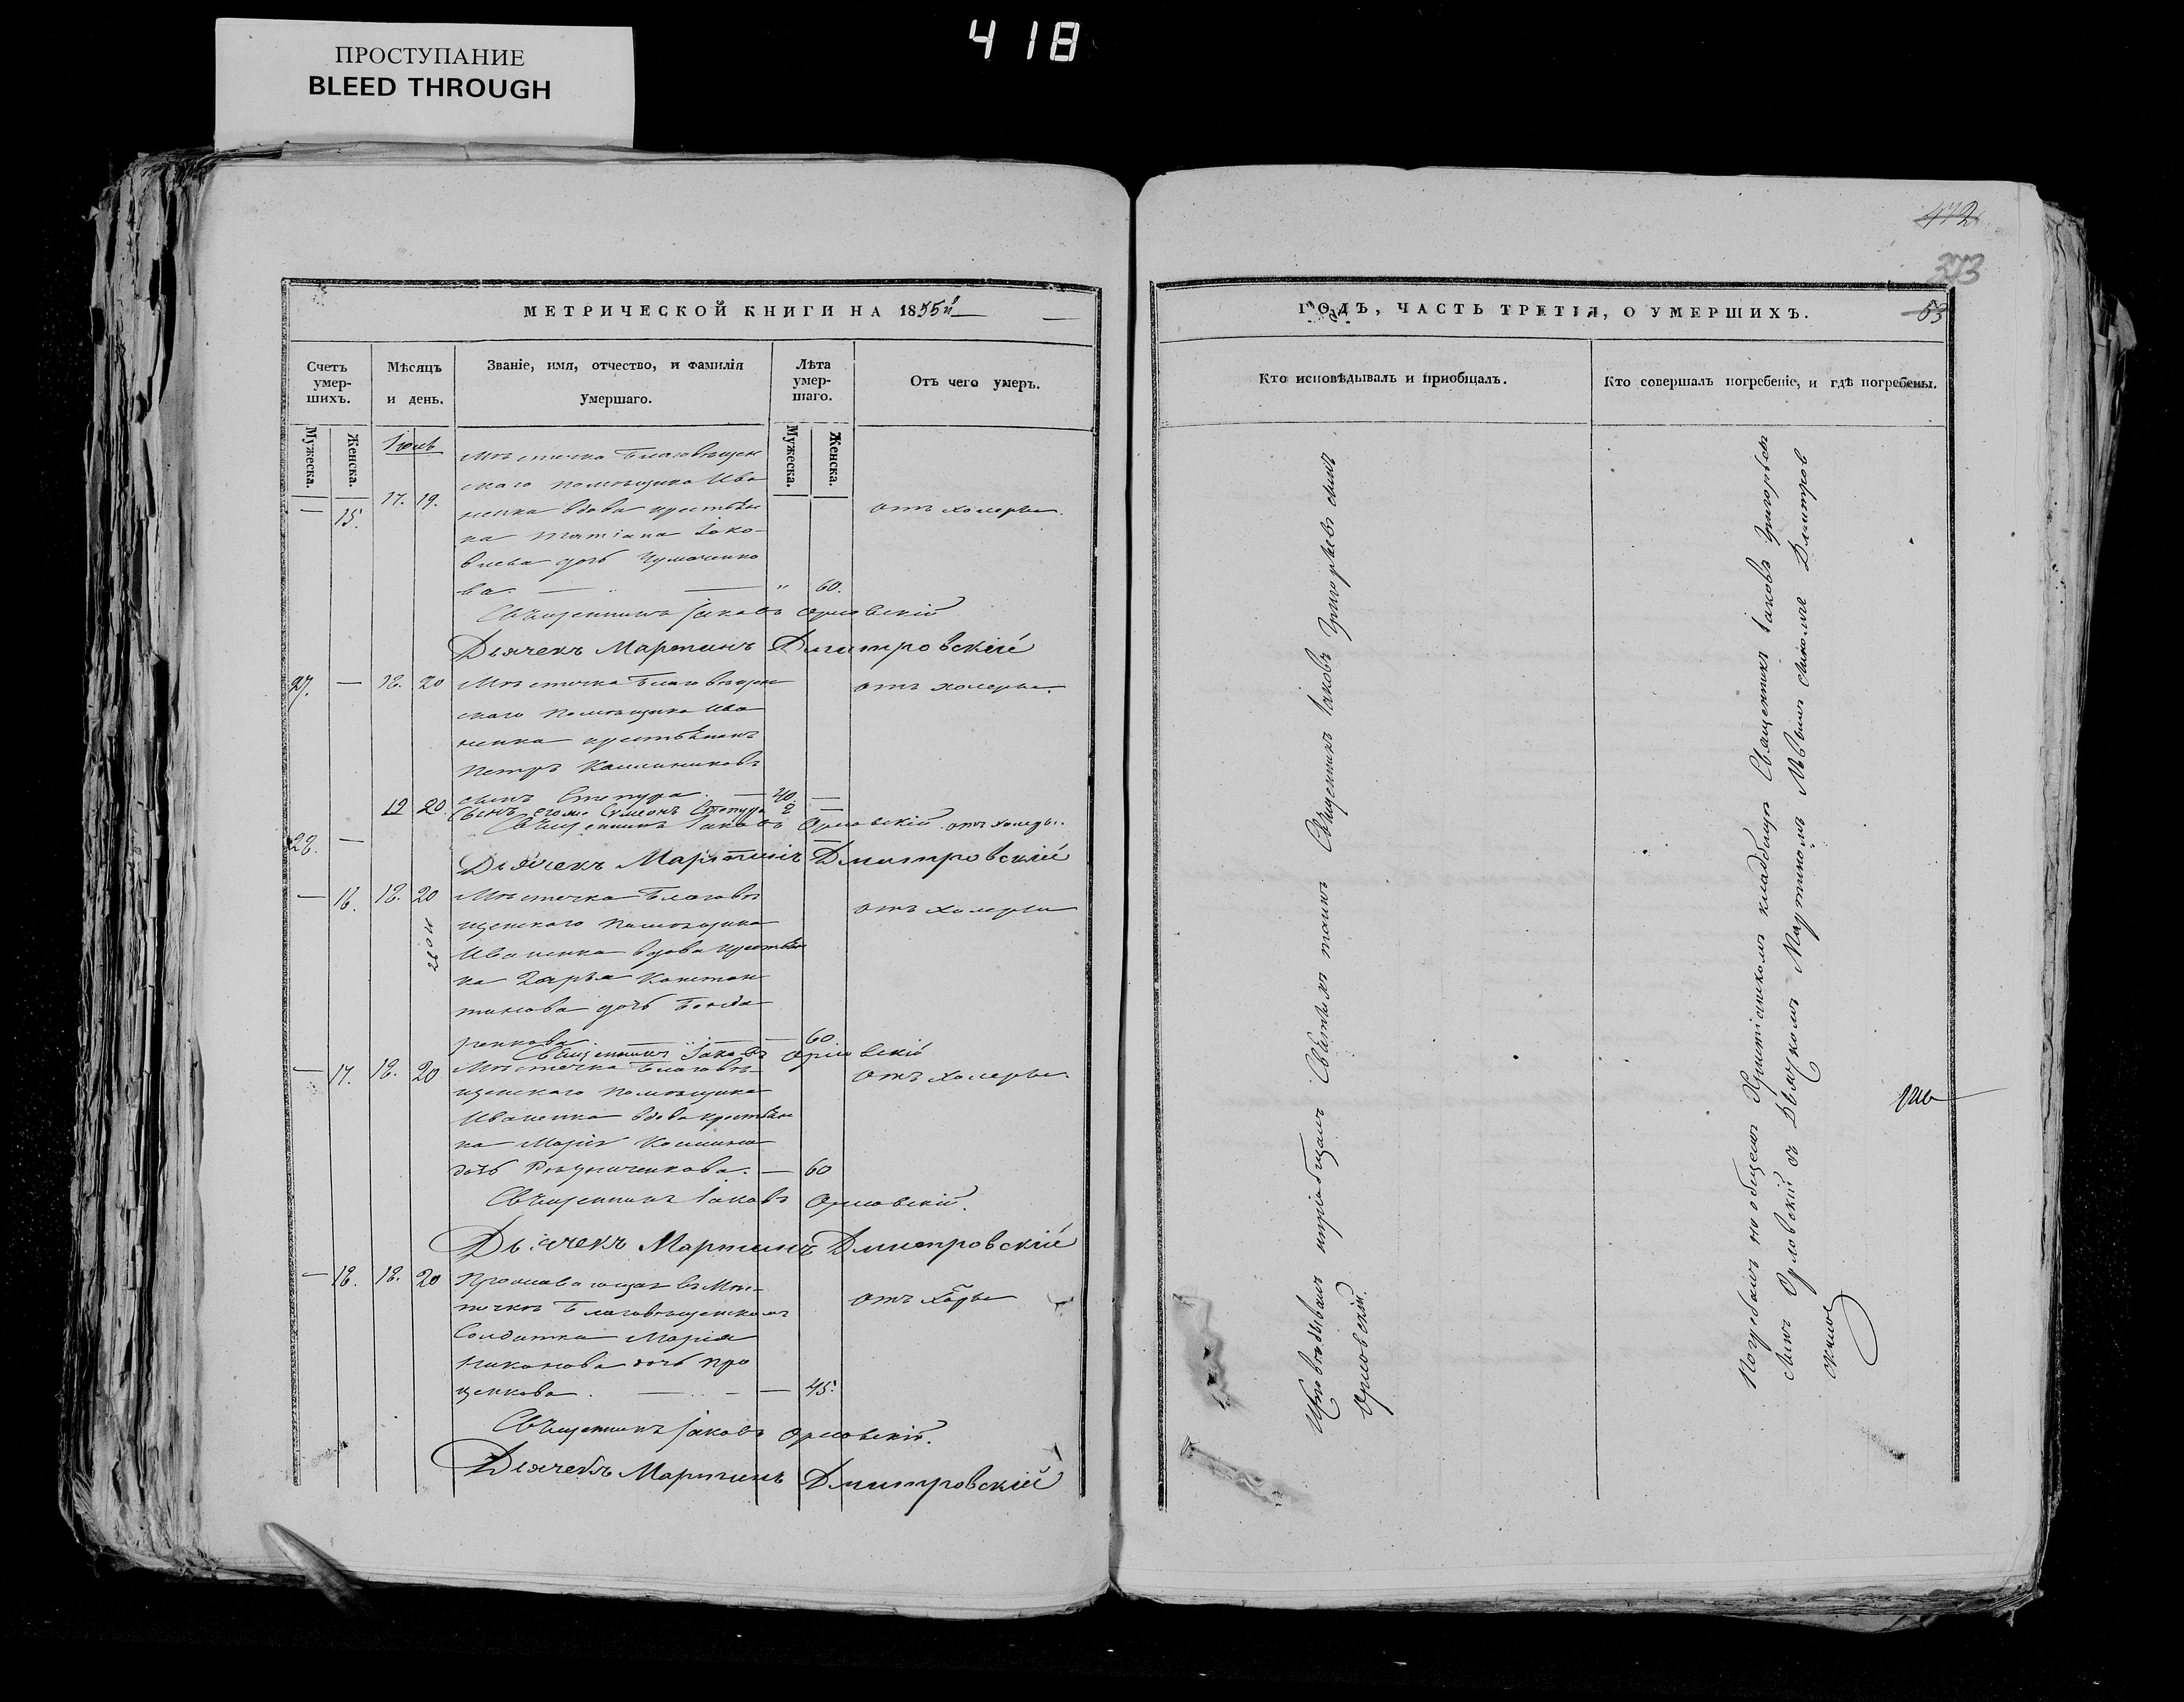 418
ПРОСТУПАНИЕ
BLEED THROUGH
МЕТРИЧЕСКОЙ КНИГИ НА 1855й
Счетъ умер-шихъ.
Мужеска.
Женска.
Мѣсяцъ и день.
Званіе, имя, отчество, и фамилія умершаго.
Лѣта умер-шаго.
Мужеска.
Женска.
Отъ чего умеръ.
Іюль
— 15. 17. 19.
Мѣстечка Благовѣщен
скаго помѣщика Ива
ненка вдова крестьян
ка Татіана Іако-
влева дочь Чумаченко
ва. — „ 60.
отъ холеры.
Священникъ Іаковъ Орловскій
Дьячекъ Мартинъ Дмитровскій
27. — 18. 20
Мѣстечка Благовѣщен
скаго помѣщика Ива
ненка крестьянинъ
Петръ
сынъ — 40. —
отъ холеры.
19 20. Сынъ его Симеонъ 2 —
Священникъ Іаковъ Орловскій отъ холеры.
28. —
Дьячекъ Мартинъ Дмитровскій
— 16. 18. 20
Мѣстечка Благовѣ
щенскаго помѣщика
Иваненка вдова крестьян
ка Дарья Констан
тинова дочь Бонда
ренкова. — 60
отъ холеры
Священникъ Іаковъ Орловскій
— 17. 18. 20
Мѣстечка Благовѣ-
щенскаго помѣщика
Иваненка вдова крестьян
ка Марія
дочь — 60
отъ холеры.
Священникъ Іаковъ Орловскій.
Дьячекъ Мартинъ Дмитровскій
— 18. 18. 20
Проживающая въ Мѣс-
течкѣ Благовѣщенскомъ
Солдатка Марія
Никонова дочь Про
ценкова. — 45.
Священникъ Іаковъ Орловскій.
Дьячекъ Мартинъ Дмитровскій
472
373
53
ГОДЪ, ЧАСТЬ ТРЕТІЯ, О УМЕРШИХЪ.
Кто исповѣдывалъ и пріобщалъ.
Кто совершалъ погребеніе, и гдѣ погребены.
Исповѣдывалъ и пріобщалъ Святыхъ таинъ Священникъ Іаковъ Григорьевъ сынъ
Орловскій.
Погребалъ на общемъ Христіанскомъ кладбищѣ Священникъ Іаковъ Григорьевъ
сынъ Орловскій съ Дьячкомъ Мартиномъ